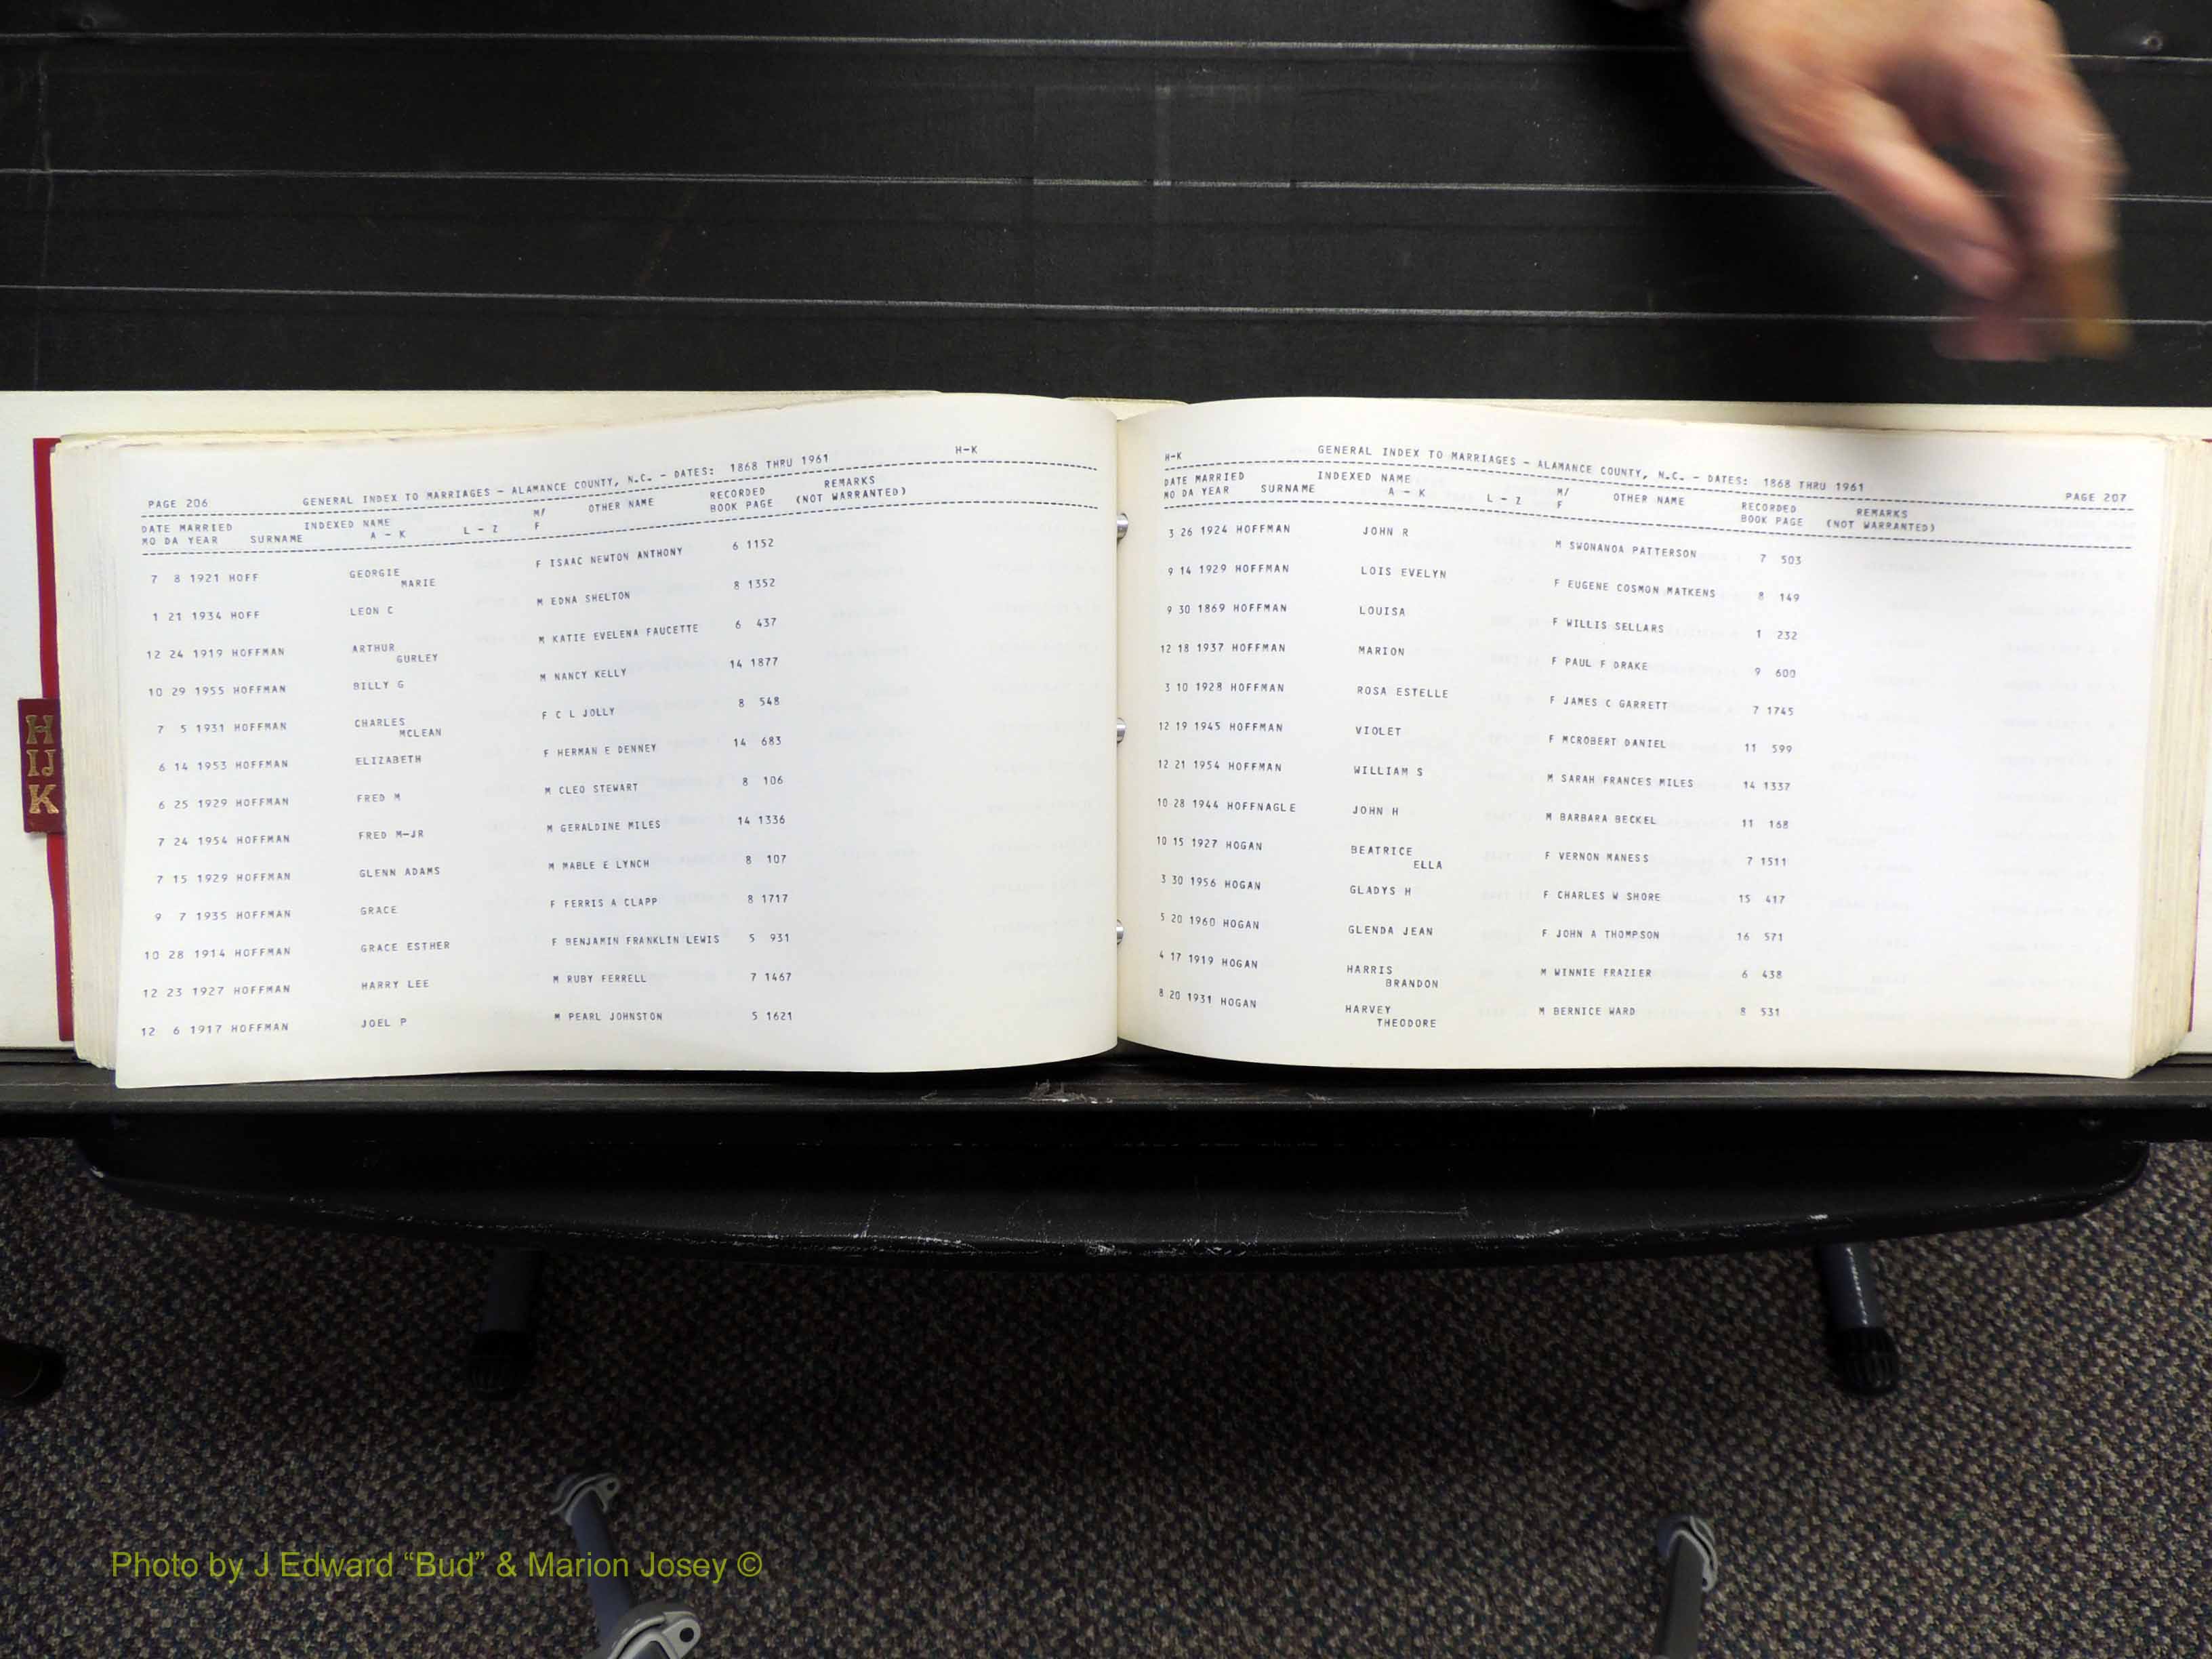 H-K
PAGE 206 GENERAL INDEX TO MARRIAGES - ALAMANCE COUNTY, N.C. - DATES: 1868 THRU 1961
DATE MARRIED INDEXED NAME M/ OTHER NAME RECORDED REMARKS
MO DA YEAR SURNAME A - K L - Z F BOOK PAGE (NOT WARRANTED)
7 8 1921 HOFF GEORGIE F ISAAC NEWTON ANTHONY 6 1152
MARIE
1 21 1934 HOFF LEON C M EDNA SHELTON 8 1352
12 24 1919 HOFFMAN ARTHUR M KATIE EVELENA FAUCETTE 6 437
GURLEY
10 29 1955 HOFFMAN BILLY G M NANCY KELLY 14 1877
7 5 1931 HOFFMAN CHARLES F C L JOLLY 8 548
MCLEAN
6 14 1953 HOFFMAN ELIZABETH F HERMAN E DENNEY 14 683
6 25 1929 HOFFMAN FRED M M CLEO STEWART 8 106
7 24 1954 HOFFMAN FRED M-JR M GERALDINE MILES 14 1336
7 15 1929 HOFFMAN GLENN ADAMS M MABLE E LYNCH 8 107
9 7 1935 HOFFMAN GRACE F FERRIS A CLAPP 8 1717
10 28 1914 HOFFMAN GRACE ESTHER F BENJAMIN FRANKLIN LEWIS 5 931
12 23 1927 HOFFMAN HARRY LEE M RUBY FERRELL 7 1467
12 6 1917 HOFFMAN JOEL P M PEARL JOHNSTON 5 1621
H
IJ
K
H-K GENERAL INDEX TO MARRIAGES - ALAMANCE COUNTY, N.C. - DATES: 1868 THRU 1961 PAGE 207
DATE MARRIED INDEXED NAME M/ OTHER NAME RECORDED REMARKS
MO DA YEAR SURNAME A - K L - Z F BOOK PAGE (NOT WARRANTED)
3 26 1924 HOFFMAN JOHN R M SWONANOA PATTERSON 7 503
9 14 1929 HOFFMAN LOIS EVELYN F EUGENE COSMON MATKENS 8 149
9 30 1869 HOFFMAN LOUISA F WILLIS SELLARS 1 232
12 18 1937 HOFFMAN MARION F PAUL F DRAKE 9 600
3 10 1928 HOFFMAN ROSA ESTELLE F JAMES C GARRETT 7 1745
12 19 1945 HOFFMAN VIOLET F MCROBERT DANIEL 11 599
12 21 1954 HOFFMAN WILLIAM S M SARAH FRANCES MILES 14 1337
10 28 1944 HOFFNAGLE JOHN H M BARBARA BECKEL 11 168
10 15 1927 HOGAN BEATRICE F VERNON MANESS 7 1511
ELLA
3 30 1956 HOGAN GLADYS H F CHARLES W SHORE 15 417
5 20 1960 HOGAN GLENDA JEAN F JOHN A THOMPSON 16 571
4 17 1919 HOGAN HARRIS M WINNIE FRAZIER 6 438
BRANDON
8 20 1931 HOGAN HARVEY M BERNICE WARD 8 531
THEODORE
Photo by J Edward “Bud” & Marion Josey ©